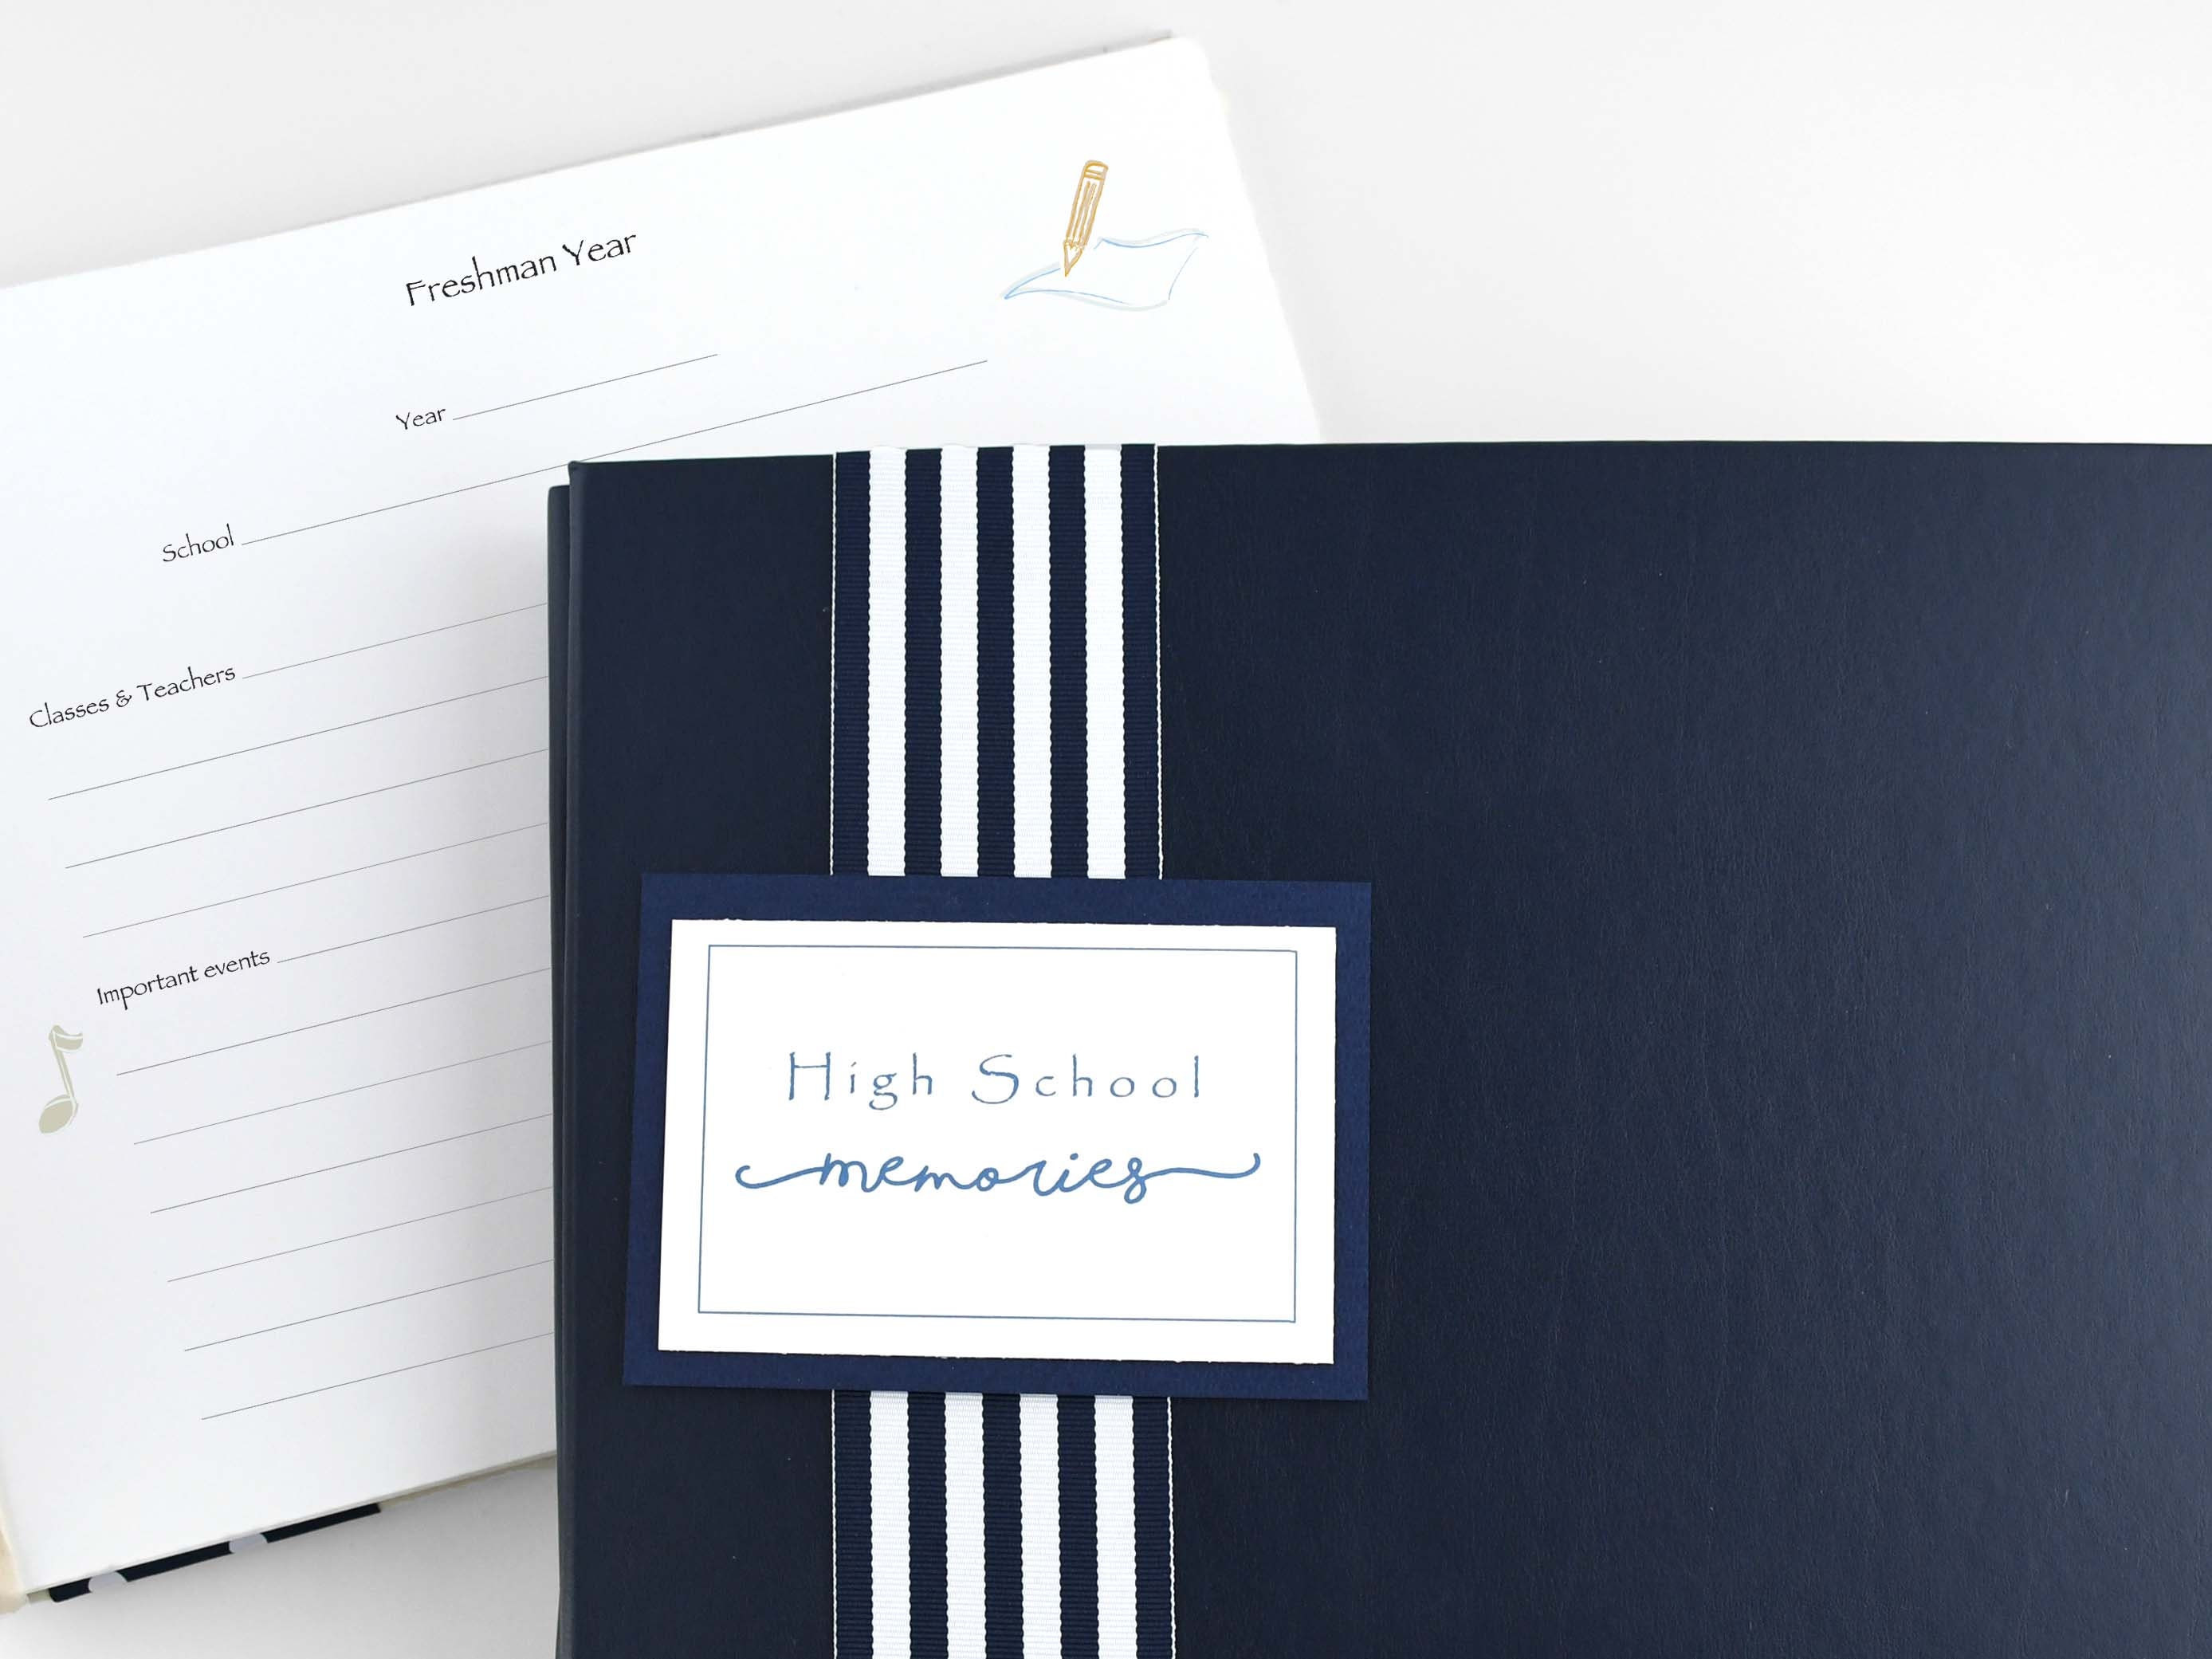 Freshman Year
Year
School
Classes & Teachers
Important events
High School
memories